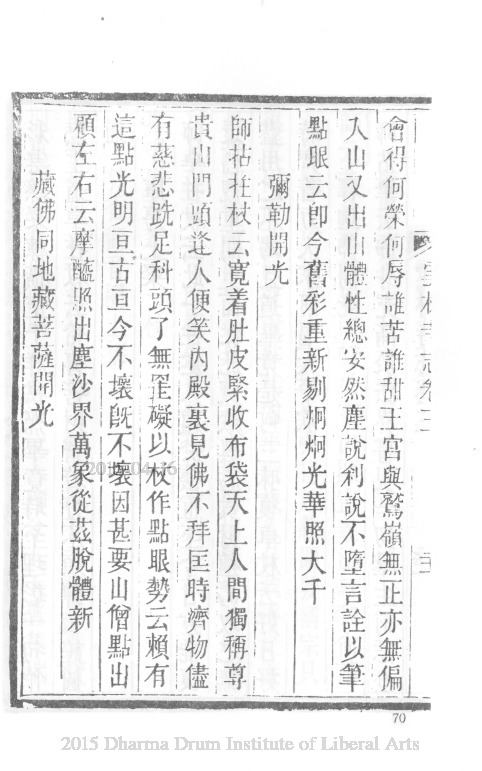 會得何榮何辱誰苦誰甜王宮與鷲嶺無正亦無偏
入山又出山體性總安然塵說利說不墮言詮以筆
點眼云即今舊彩重新剔炯炯光華照大千
彌勒開光
師拈拄杖云寬着肚皮緊收布袋天上人間獨稱尊
貴出門頭逢人便笑內殿裏見佛不拜匡時濟物儘
有慈悲跣足科頭了無罣礙以杖作點眼勢云賴有
這點光明亘古亘今不壞旣不壞因甚要山僧點出
顧左右云摩醯照出塵沙界萬象從茲脫體新
藏佛同地藏菩薩開光
70
2015 Dharma Drum Institute of Liberal Arts